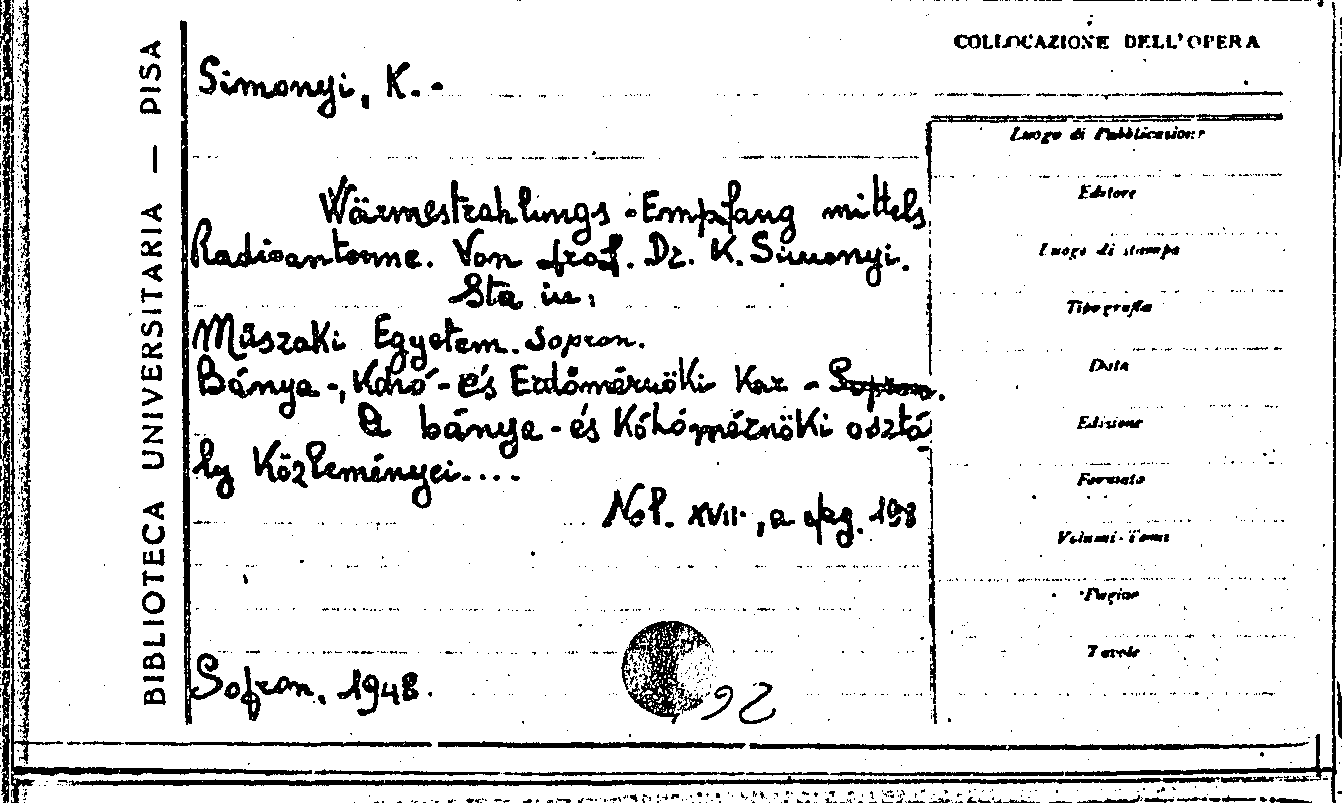 BIBLIOTECA UNIVERSITARIA — PISA
Simonyi, K. -
Wärmestrahlungs - Empfang mittels
Radioantenne. Von prof. Dr. K. Simonyi.
Sta in:
Műszaki Egyetem. Sopron.
Bánya-, Kohó- és Erdőmérnöki Kar - Sopron.
A bánya - és Kóhómérnöki osztá
ly Közleményei....
Vol. XVII., a pag. 198
Sopron. 1948.
COLLOCAZIONE DELL'OPERA
Luogo di Pubblicazione
Editore
Luogo di stampa
Tipografia
Data
Edizione
Formato
Volumi - Tomi
Pagine
Tavole